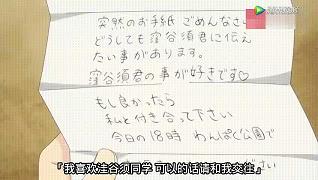 突然のお手紙 ごめんなさい
どうしても窪谷須君に伝え
たい事があります。
窪谷須君の事が好きです♡
もし良かったら
私と付き合って下さい
今日の18時 わんぱく公園で
ださい
「我喜欢洼谷须同学 可以的话请和我交往」